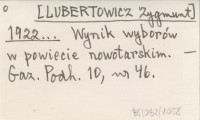 [LUBERTOWICZ Zygmunt]
1922... Wynik wyborów
w powiecie nowotarskim. —
Gaz. Podh. 10, nr 46.